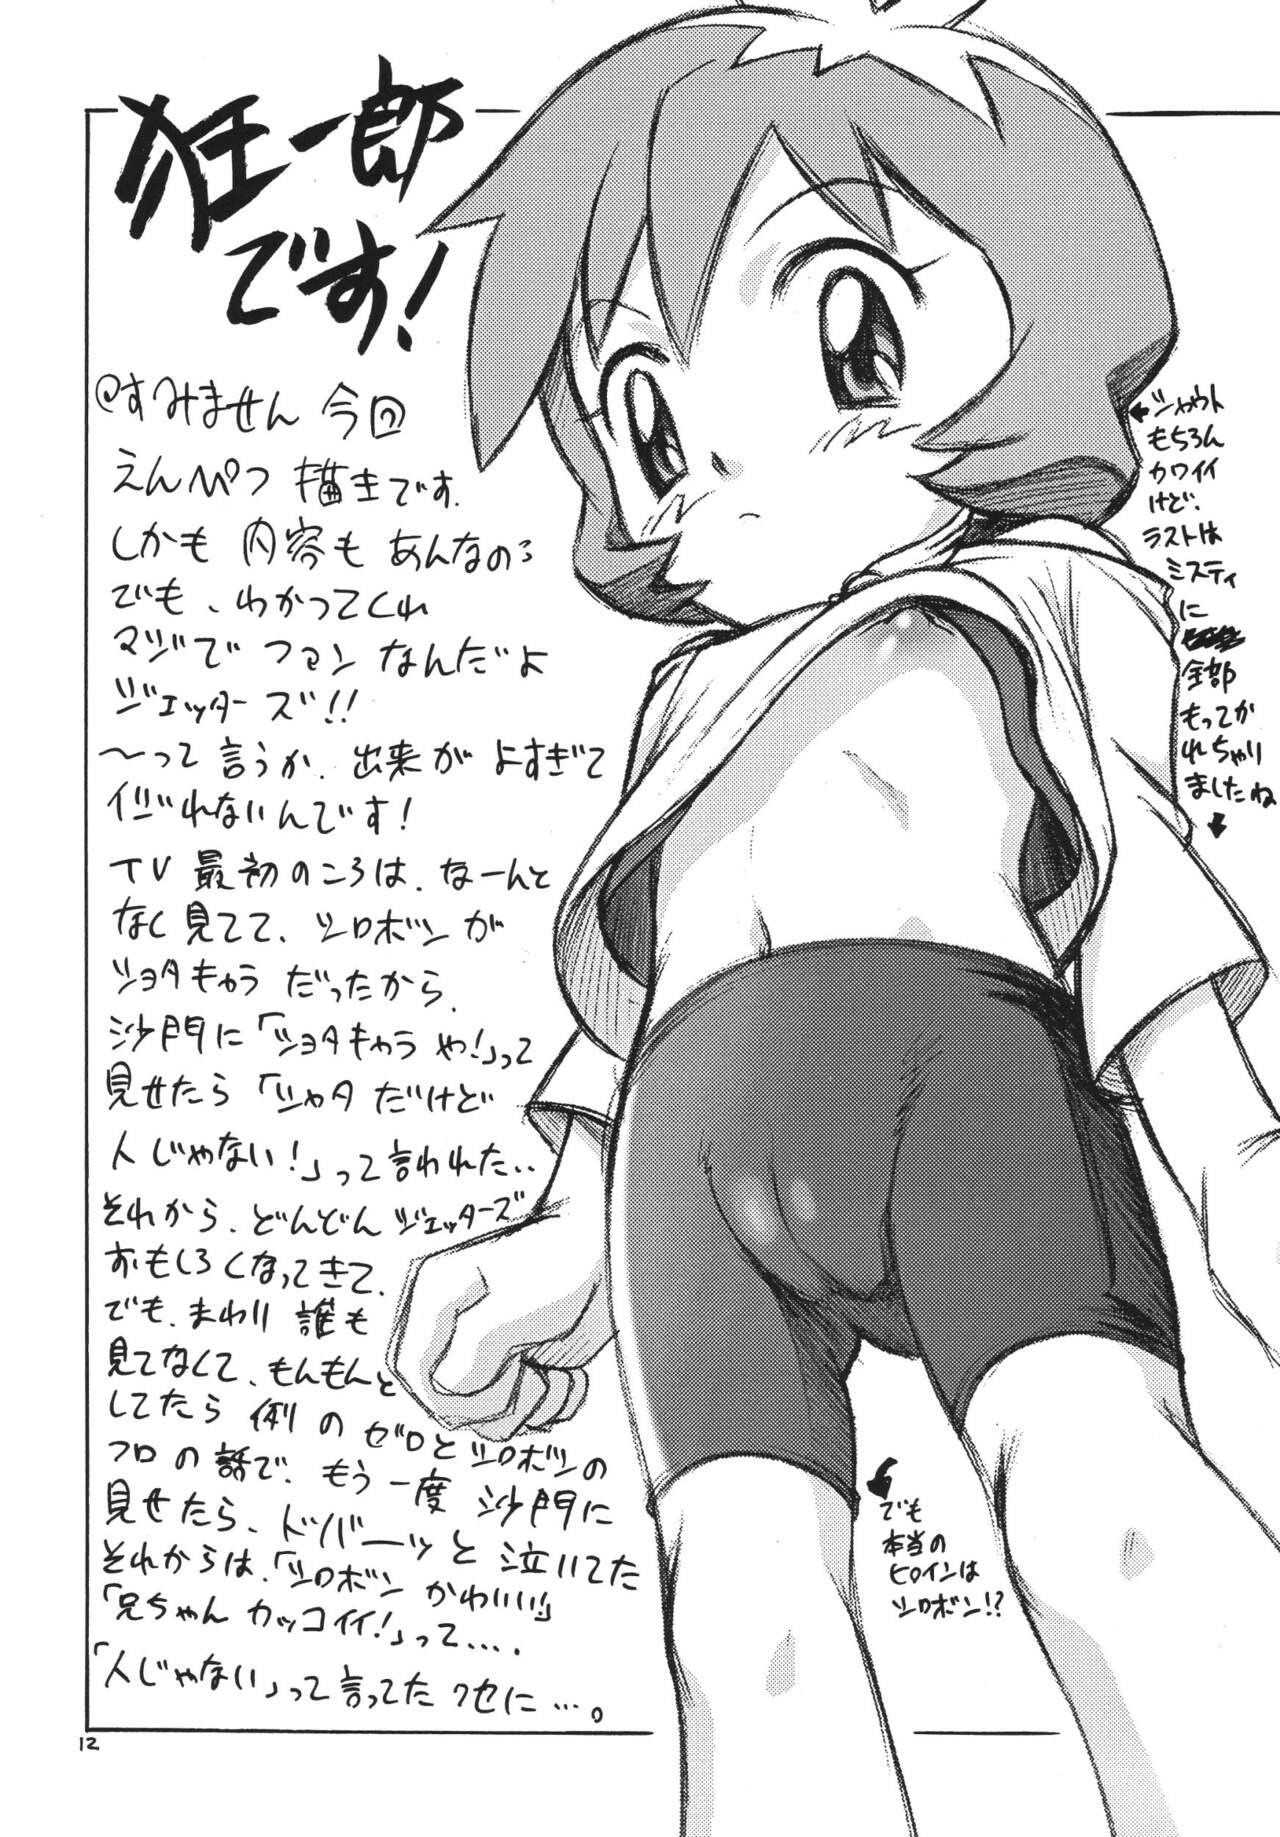 狂一郎
です！
すみません 今回
えんぴつ 描きです.
しかも 内容も あんなの
でも、わかってくれ
マジで ファン なんだよ
ジェッターズ!!
〜って 言うか. 出来が よすぎて
イジれないんです！
TV 最初のころは、なーんと
なく見てて、シロボンが
ショタキャラ だったから、
沙門に「ショタキャラ や！」って
見せたら「ショタ だけど
人じゃない！」って言われた..
それから、どんどん ジェッターズ
おもしろくなってきて、
でも、まわり 誰も
見てなくて、もんもんと
してたら 例の ゼロとシロボンの
フロの話で、もう一度 沙門に
見せたら、ドバーッと 泣いてた
それからは、「シロボン かわいい」
「兄ちゃん カッコイイ！」って....
「人じゃない」って言ってた クセに ...。
シャウト
もちろん
カワイイ
けど、
ラストは
ミスティ
に
全部
もってか
れちゃり
ましたね
でも
本当の
ヒロインは
シロボン!?
12